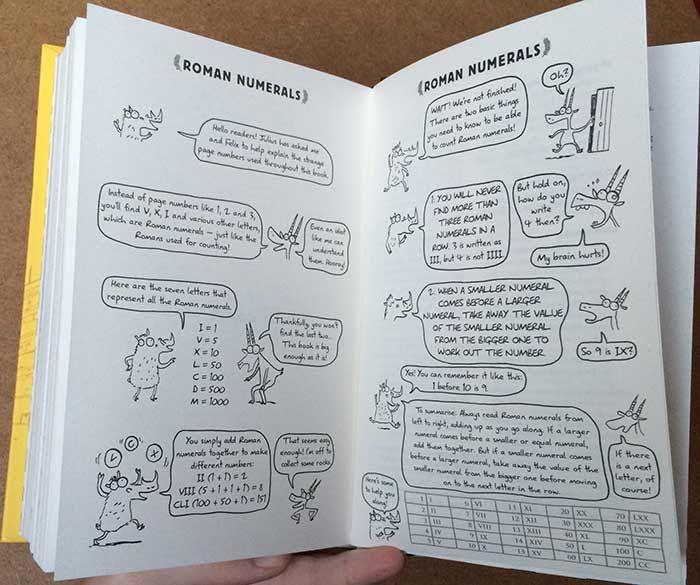 ROMAN NUMERALS
Hello readers! Julius has asked me
and Felix to help explain the strange
page numbers used throughout this book.
Instead of page numbers like 1, 2 and 3,
you'll find V, X, I and various other letters,
which are Roman numerals – just like the
Romans used for counting!
Even an idiot
like me can
understand
them. Hooray!
Here are the seven letters that
represent all the Roman numerals.
I = 1
V = 5
X = 10
L = 50
C = 100
D = 500
M = 1000
Thankfully, you won't
find the last two...
This book is big
enough as it is!
V
C
X
You simply add Roman
numerals together to make
different numbers:
II (1 + 1) = 2
VIII (5 + 1 + 1 + 1) = 8
CLI (100 + 50 + 1) = 151
That seems easy
enough! I'm off to
collect some rocks.
ROMAN NUMERALS
WAIT! We're not finished!
There are two basic things
you need to know to be able
to count Roman numerals!
Oh?
1. YOU WILL NEVER
FIND MORE THAN
THREE ROMAN
NUMERALS IN A
ROW. 3 is written as
III, but 4 is not IIII.
But hold on,
how do you
write
4 then?
My brain hurts!
2. WHEN A SMALLER NUMERAL
COMES BEFORE A LARGER
NUMERAL, TAKE AWAY THE VALUE
OF THE SMALLER NUMERAL
FROM THE BIGGER ONE TO
WORK OUT THE NUMBER.
So 9 is IX?
Yes! You can remember it like this:
1 before 10 is 9.
To summarise: Always read Roman numerals from
left to right, adding up as you go along. If a larger
numeral comes before a smaller or equal numeral,
add them together. But if a smaller numeral comes
before a larger numeral, take away the value of the
smaller numeral from the bigger one before moving
on to the next letter in the row.
If there
is a next
letter, of
course!
Here's some
to help you
along!
1 I 6 VI 11 XI 20 XX 70 LXX
2 II 7 VII 12 XII 30 XXX 80 LXXX
3 III 8 VIII 13 XIII 40 XL 90 XC
4 IV 9 IX 14 XIV 50 L 100 C
5 V 10 X 15 XV 60 LX 200 CC